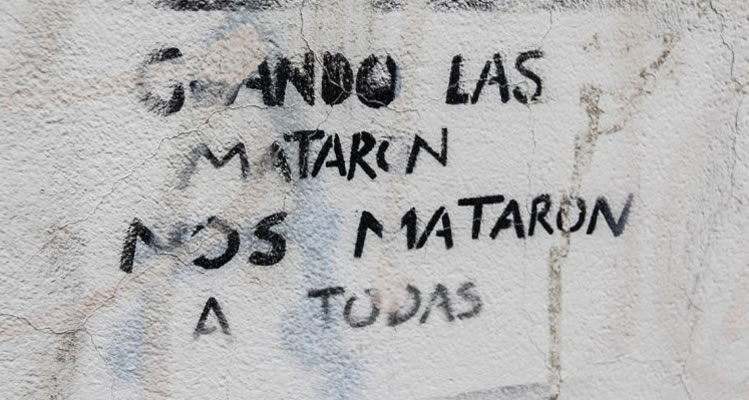 CUANDO LAS
MATARON
NOS MATARON
A TODAS